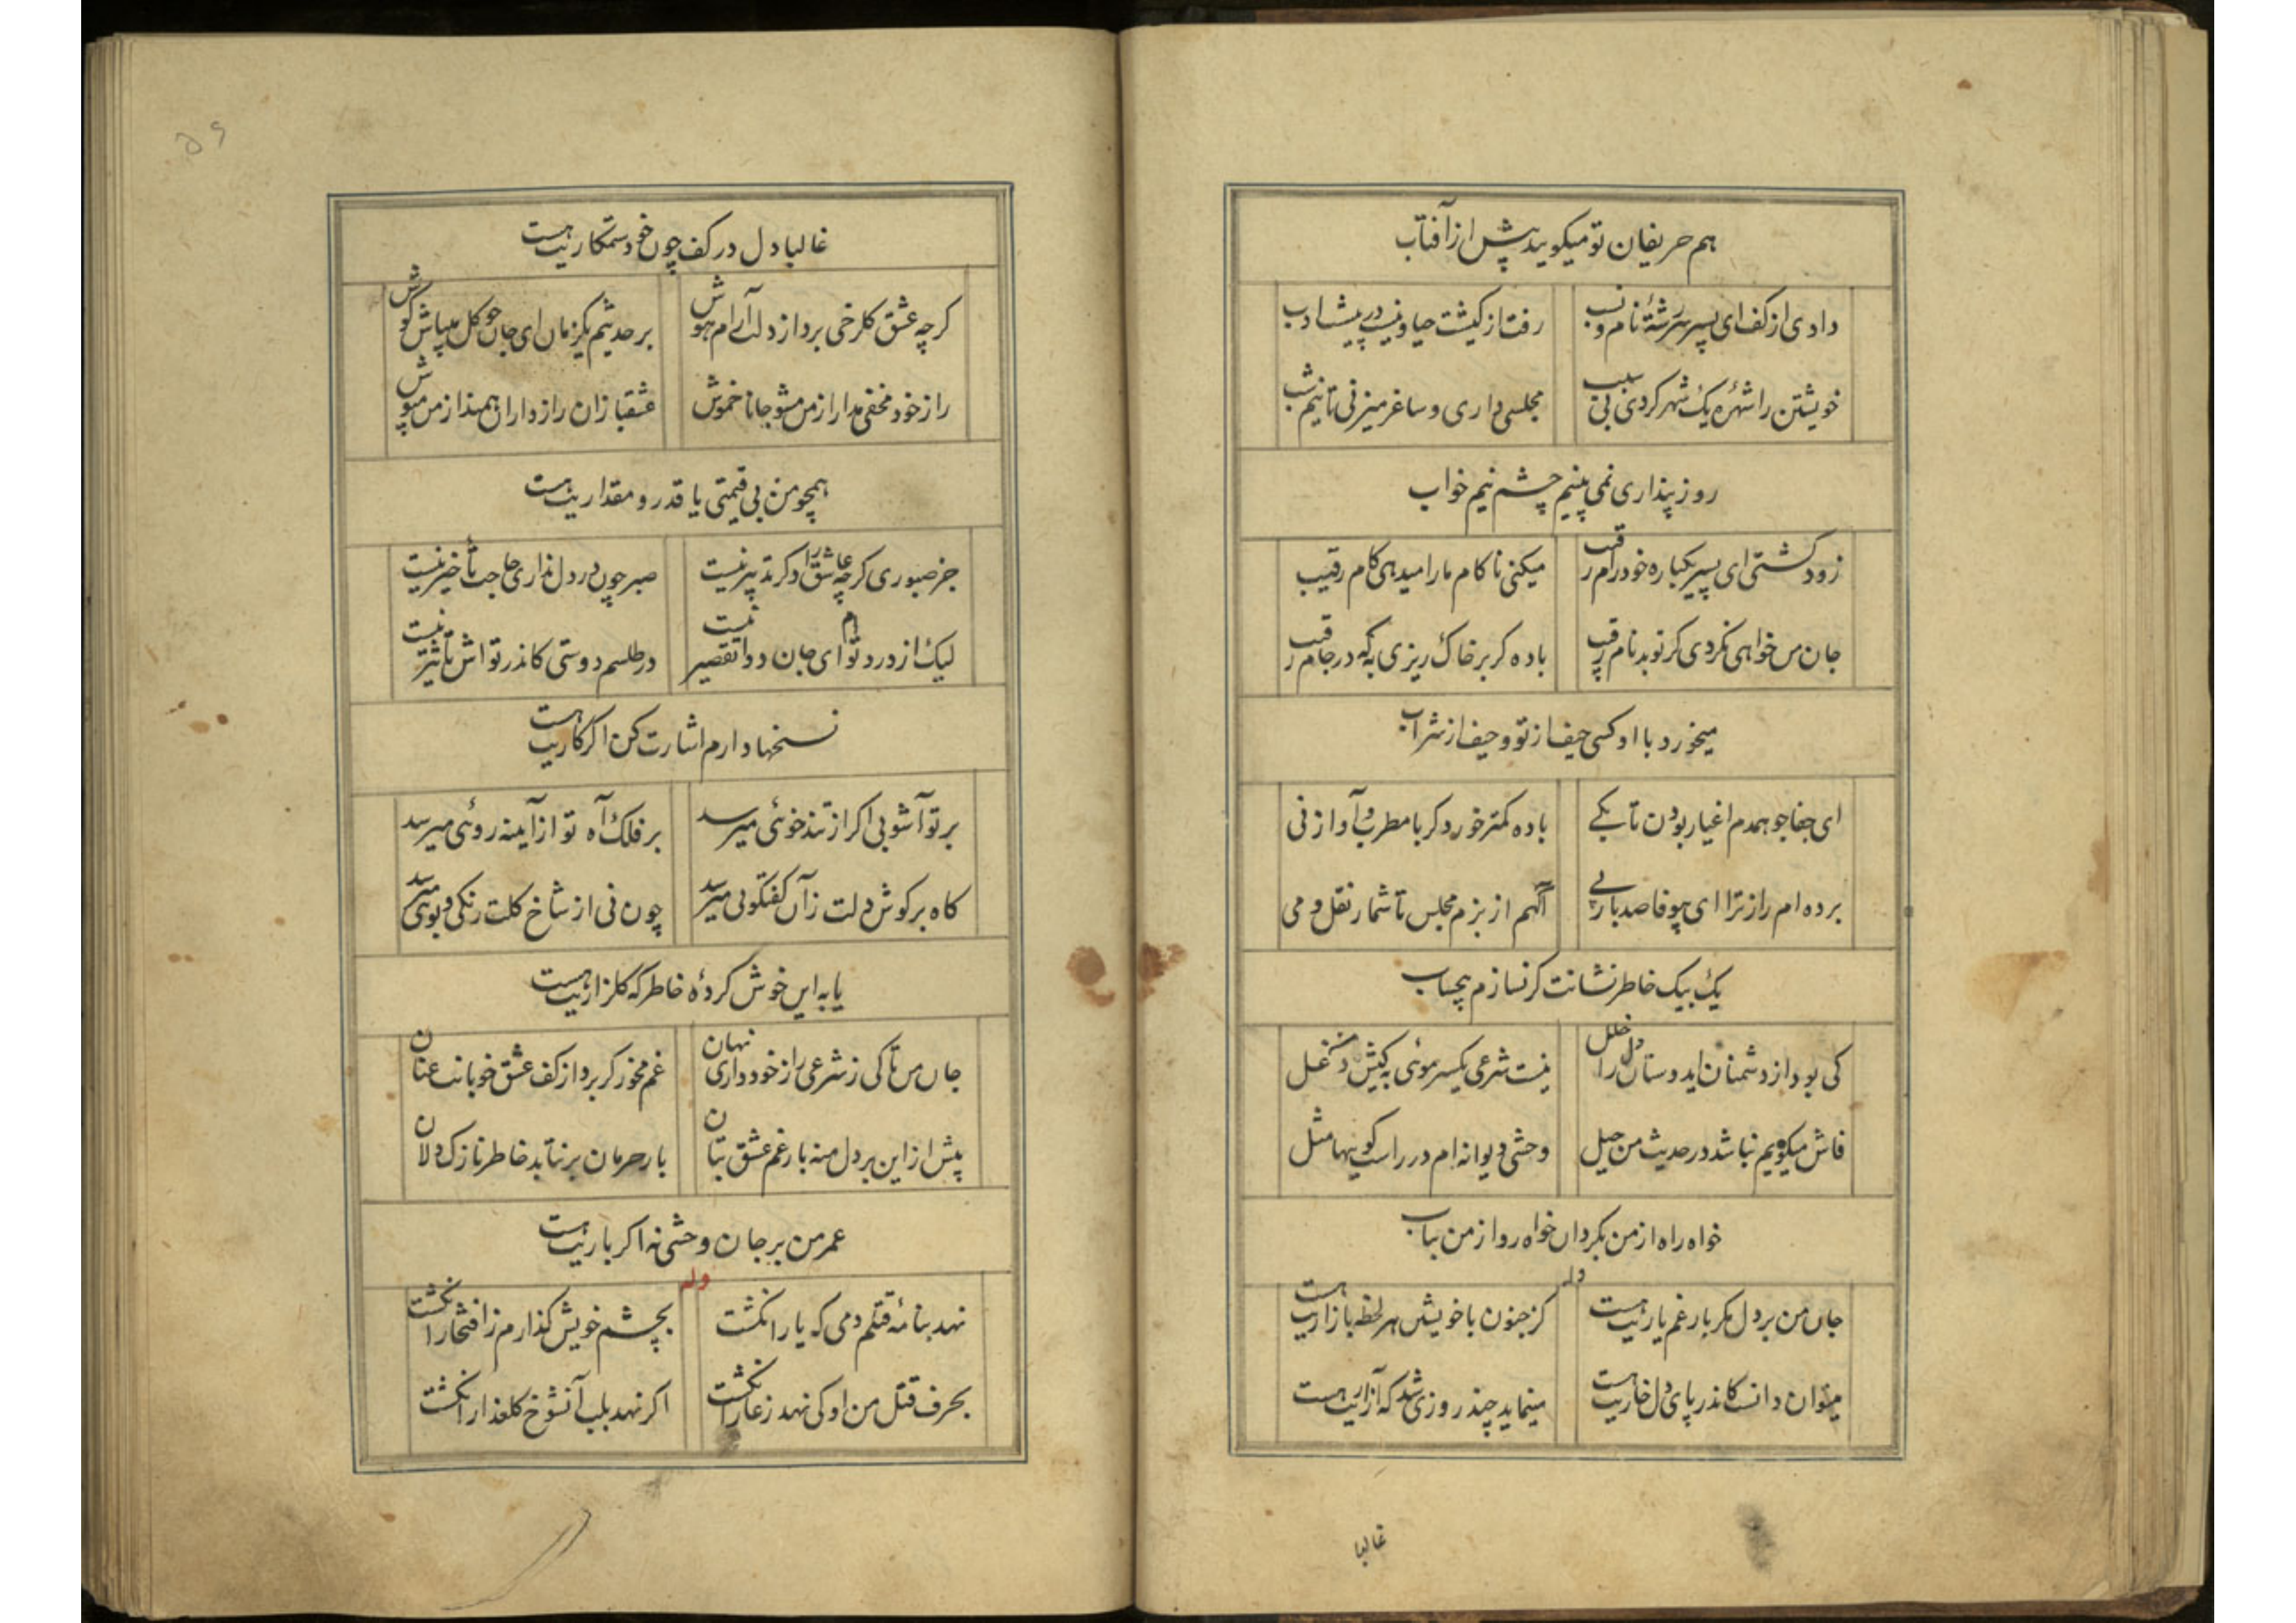 هم حریفان تو میکویند پیش از آفتاب
دادی از کف ای پسر سررشتهٔ نام و نسب
رفت از کیشت حیا و نیست در پیشت ادب
خویشتن را شهرهٔ یک شهر کردی بی سبب
مجلسی داری و ساغر میزنی تا نیم شب
روز پنداری نمی بینیم چشم نیم خواب
زود کشتی ای پسر یکباره خود رام رقیب
میکنی ناکام ما را میدهی کام رقیب
جان من خواهی نکردی کر تو بدنام رقیب
باده کر بر خاک ریزی به که در جام رقیب
میخورد با او کسی حیف از تو و حیف از شراب
ای جفاجو همدم اغیار بودن تا بکے
باده کمتر خور دکر با مطرب و آواز نی
برده ام راز ترا ای بیوفا صد بار پے
آکهم از بزم مجلس تا شمار نقل و می
یک بیک خاطر نشانت کر نسازم بیحساب
کی بود از دشمنان اید وستان را در خلل
نیست شرعی یکسر موئی به کیش دغل
فاش میکویم نباشد در حدیث من حیل
وحشی دیوانه ام در راست کویها مثل
خواه راه از من بکردان خواه رو از من بتاب
وله
جان من بر دل مکر بار غم یاریت هست
کز جنون با خویش هر لحظه بازاریت هست
میتوان دانست کاندر پای دل خاریت هست
مینماید چند روزی شد که آزاریت هست
غالبا
غالبا دل در کف چون خود ستمکاریت هست
کرچه عشق کلرخی برد از دلت آرام هوش
بر حدیثم یکزمان ای جان چو کل میباش کوش
راز خود مخفی مدار از من مشو جانا خموش
عشقبازان رازداران همند از من مپوش
همچو من بی قیمتی یا قدر و مقداریت هست
جز صبوری کرچه عاشق را دکر تدبیر نیست
صبر چون در دل نداری حاجت تأخیر نیست
لیک از درد توام ای جان دوا تقصیر نیست
در طلسم دوستی کاندر تواش تأثیر نیست
نسخها دارم اشارت کن اکر کاریت هست
بر تو آشوبی اکر از تند خوئی میرسد
بر فلک آه تو از آینه روئی میرسد
کاه بر کوش دلت زان کفتکویی میرسد
چون نی از شاخ کلت رنکی و بوئی میرسد
یا به این خوش کردهٔ خاطر که کلزاریت هست
جان من تا کی ز شرعی راز خود داری نهان
غم مخور کر برد از کف عشق خوبانت عنان
پیش از این بر دل منه بار غم عشق بتان
بار حرمان بر نتابد خاطر نازک دلان
عمر من بر جان وحشی نه اکر باریت هست
وله
نهد بنامهٔ قتلم دمی که یار انکشت
بچشم خویش کذارم ز افتخار انکشت
بحرف قتل من او کی نهد ز عار انکشت
اکر نهد بلب آنشوخ کلعذار انکشت